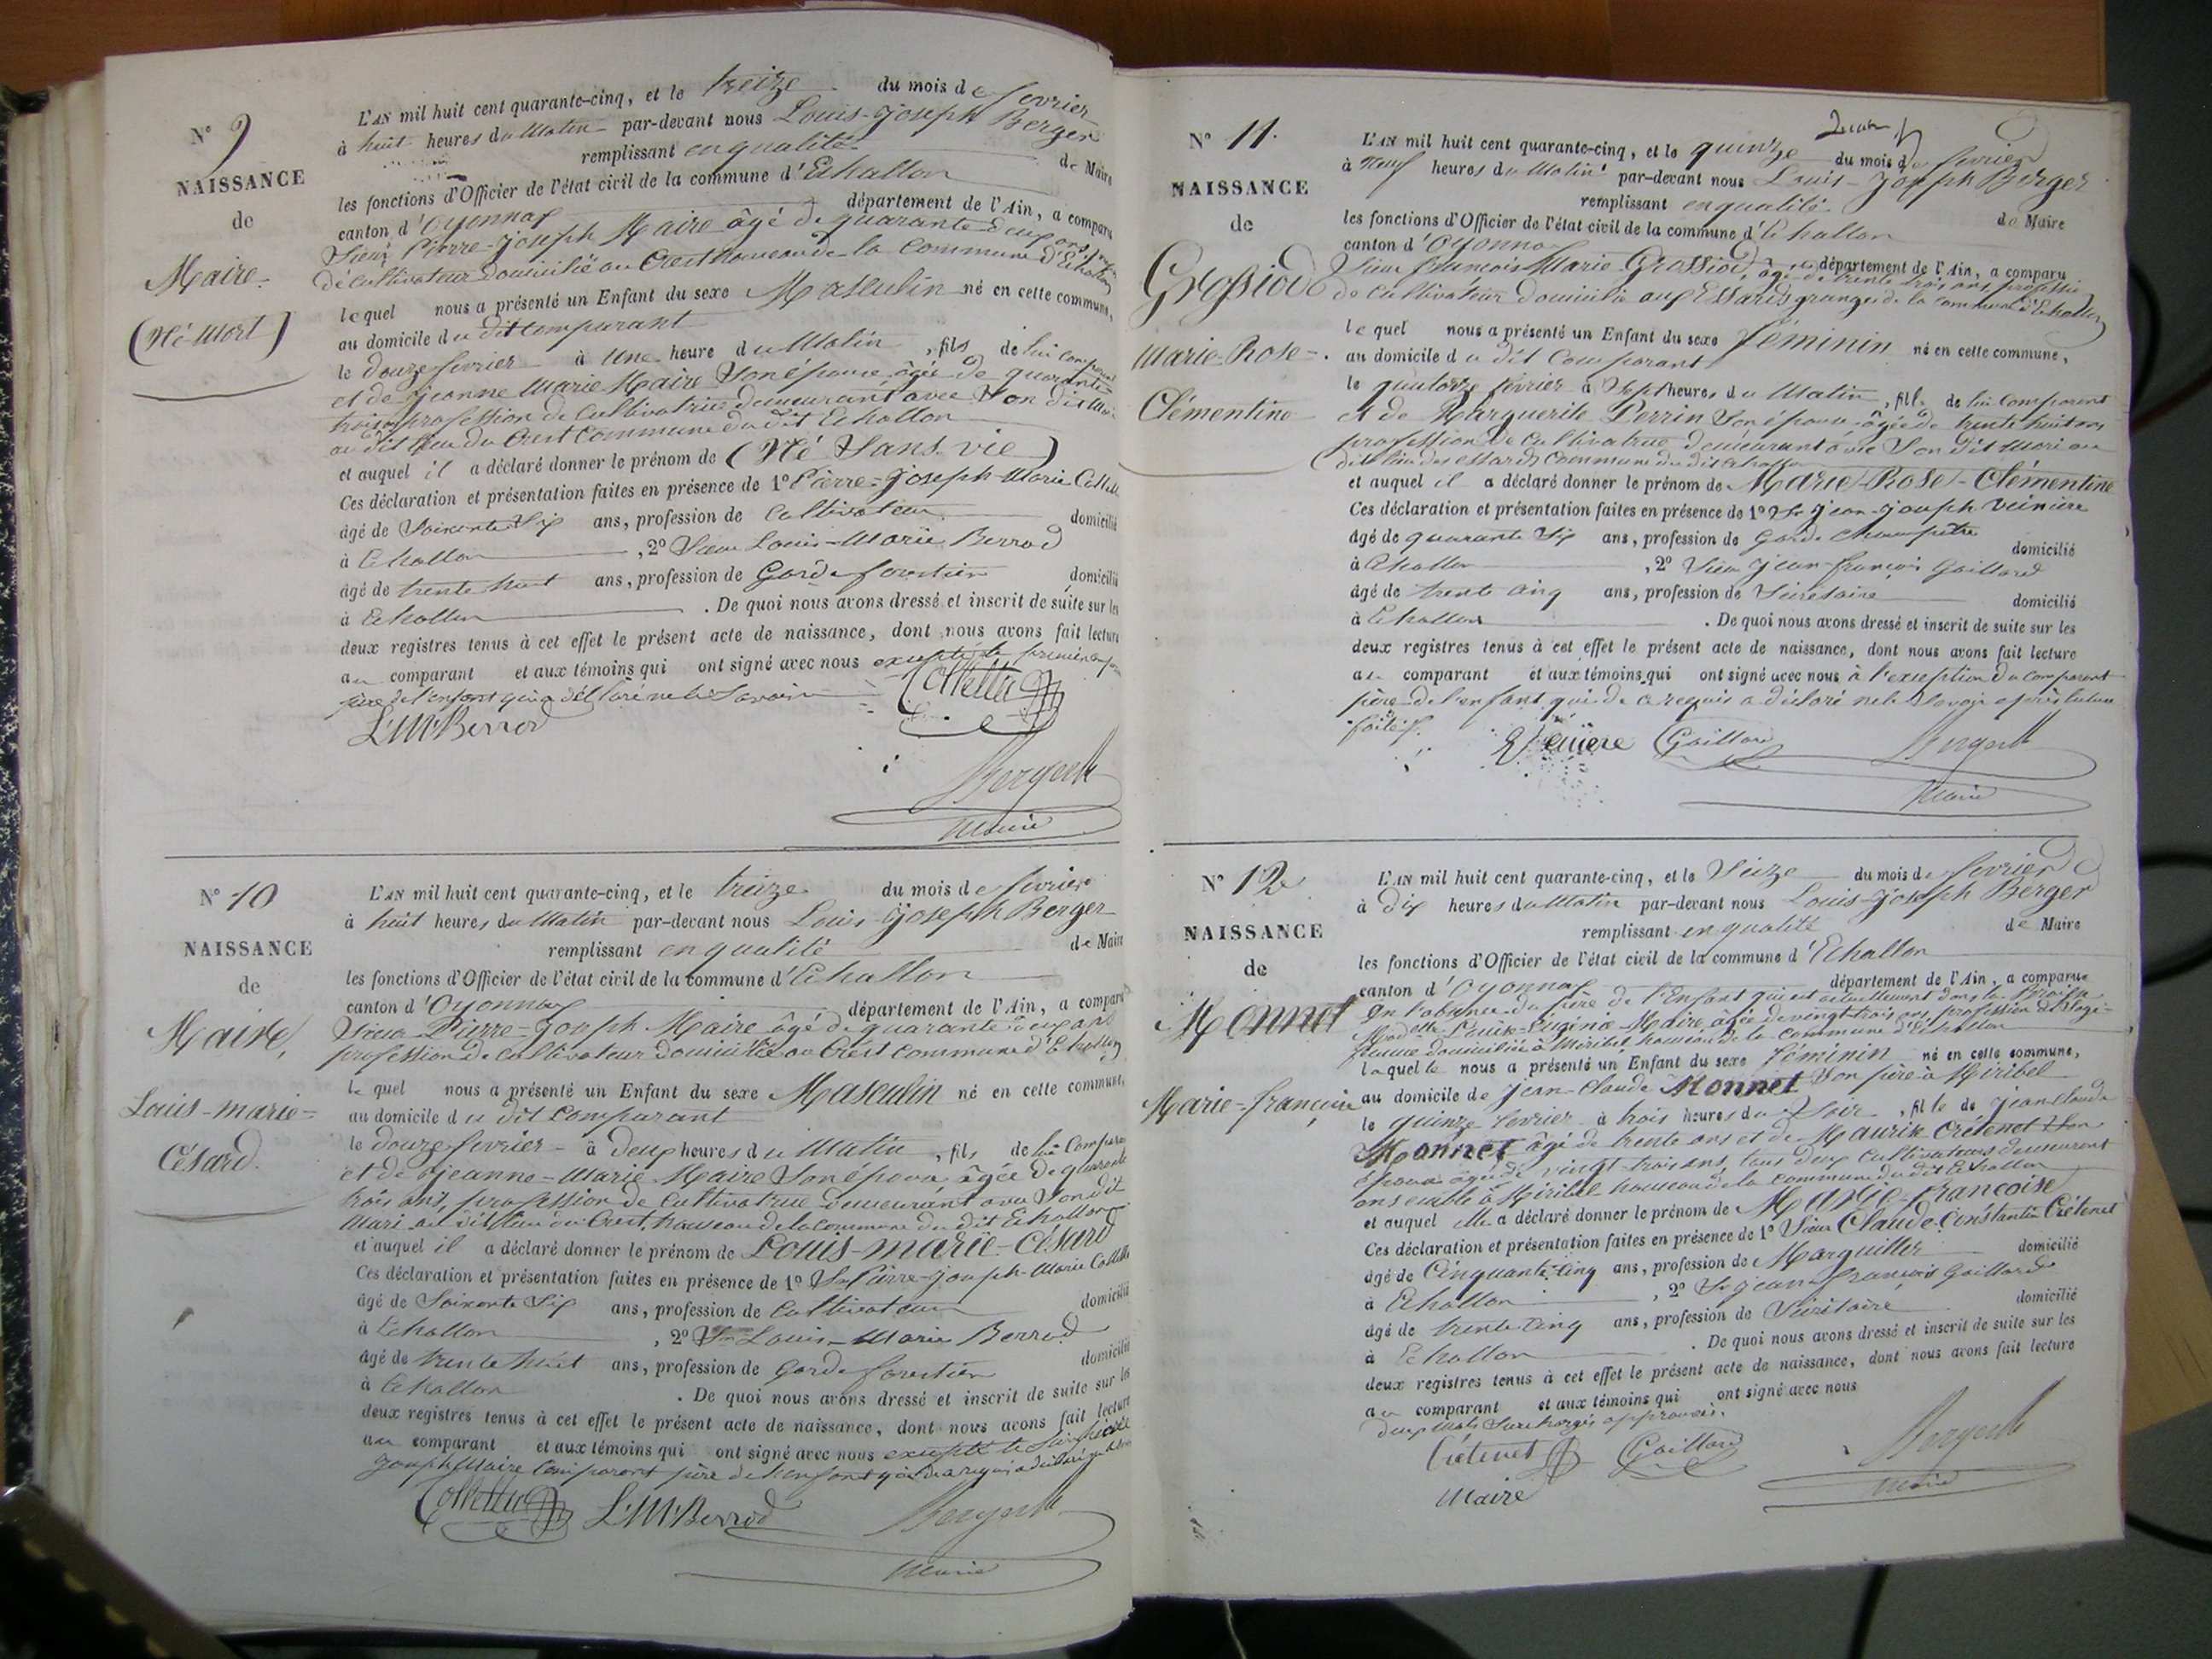 N° 9
NAISSANCE
de
Maire
(Né Mort)
L'AN mil huit cent quarante-cinq, et le treize du mois de fevrier
à huit heures du Matin par-devant nous Louis-Joseph Berger
remplissant en qualité de Maire
les fonctions d'Officier de l'état civil de la commune d'Echallon
canton d'Oyonnax département de l'Ain, a comparu
Sieur Pierre-Joseph Maire âgé de quarante deux ans
de cultivateur domicilié au Crest hameau de la Commune d'Echallon
lequel nous a présenté un Enfant du sexe Masculin né en cette commune,
au domicile du dit comparant
le douze fevrier à Une heure du Matin, fils de lui comparant
et de Jeanne Marie Maire Son épouse âgée de quarante
trois profession de Cultivatrice demeurant avec Son dit Mari
au dit lieu du Crest Commune du dit Echallon
et auquel il a déclaré donner le prénom de (Né Sans vie)
Ces déclaration et présentation faites en présence de 1° Pierre-Joseph-Marie
âgé de Soixante Six ans, profession de Cultivateur domicilié
à Echallon, 2° Sieur Louis-Marie Berrod
âgé de trente huit ans, profession de Garde forestier domicilié
à Echallon. De quoi nous avons dressé et inscrit de suite sur les
deux registres tenus à cet effet le présent acte de naissance, dont nous avons fait lecture
au comparant et aux témoins qui ont signé avec nous excepté le
père de l'enfant qui a déclaré ne le Savoir
Colletta
L M Berrod
Berger
Maire
N° 10
NAISSANCE
de
Maire,
Louis-marie-
Césard.
L'AN mil huit cent quarante-cinq, et le treize du mois de fevrier
à huit heures du Matin par-devant nous Louis Joseph Berger
remplissant en qualité de Maire
les fonctions d'Officier de l'état civil de la commune d'Echallon
canton d'Oyonnax département de l'Ain, a comparu
Sieur Pierre-Joseph Maire âgé de quarante deux ans
profession de Cultivateur domicilié au Crest commune d'Echallon
lequel nous a présenté un Enfant du sexe Masculin né en cette commune,
au domicile du dit comparant
le douze fevrier à Deux heures du Matin, fils de lui Comparant
et de Jeanne-Marie Maire Son épouse, âgée de quarante
trois ans, profession de Cultivatrice demeurant avec Son dit
Mari au dit lieu du Crest, hameau de la commune du dit Echallon
et auquel il a déclaré donner le prénom de Louis-marie-Césard
Ces déclaration et présentation faites en présence de 1° Sr Pierre-Joseph-Marie
âgé de Soixante Six ans, profession de Cultivateur domicilié
à Echallon, 2° Sr Louis-Marie Berrod
âgé de trente huit ans, profession de Garde forestier domicilié
à Echallon. De quoi nous avons dressé et inscrit de suite sur les
deux registres tenus à cet effet le présent acte de naissance, dont nous avons fait lecture
au comparant et aux témoins qui ont signé avec nous excepté le Sieur Pierre
Joseph Maire Comparant père de l'enfant qui de ce requis a déclaré
Colletta L M Berrod Berger
Maire
N° 11.
NAISSANCE
de
Grossiod
Marie-Rose-
Clémentine
L'AN mil huit cent quarante-cinq, et le quinze du mois de fevrier
à Neuf heures du Matin par-devant nous Louis-Joseph Berger
remplissant en qualité de Maire
les fonctions d'Officier de l'état civil de la commune d'Echallon
canton d'Oyonnax département de l'Ain, a comparu
Sieur François Marie Grossiod, âgé de trente trois ans, profession
de Cultivateur domicilié aux Essards granges de la commune d'Echallon
lequel nous a présenté un Enfant du sexe féminin né en cette commune,
au domicile du dit Comparant
le quatorze fevrier à Sept heures du Matin, fille de lui Comparant
et de Marguerite Perrin Son épouse âgée de trente huit ans
profession de cultivatrice demeurant avec Son dit Mari au
dit lieu des Essards Commune du dit Echallon
et auquel il a déclaré donner le prénom de Marie-Rose-Clémentine
Ces déclaration et présentation faites en présence de 1° Sr Jean-Joseph Veinière
âgé de quarante Six ans, profession de Garde Champêtre domicilié
à Echallon, 2° Sieur Jean-françois Gaillard
âgé de trente cinq ans, profession de Secrétaire domicilié
à Echallon. De quoi nous avons dressé et inscrit de suite sur les
deux registres tenus à cet effet le présent acte de naissance, dont nous avons fait lecture
au comparant et aux témoins qui ont signé avec nous à l'exception du Comparant
père de l'enfant qui de ce requis a déclaré ne le Savoir après lecture
faite.
Veniere Gaillard Berger
Maire
N° 12
NAISSANCE
de
Monnet
Marie-françoise
L'AN mil huit cent quarante-cinq, et le Seize du mois de fevrier
à dix heures du Matin par-devant nous Louis-Joseph Berger
remplissant en qualité de Maire
les fonctions d'Officier de l'état civil de la commune d'Echallon
canton d'Oyonnax département de l'Ain, a comparue
En l'absence du père de l'Enfant qui est actuellement dans la
Madelle Louise-Eugénie Maire, âgée de vingt-trois ans, profession de Sage-
femme domiciliée à Miribel hameau de la Commune d'Echallon
laquelle nous a présenté un Enfant du sexe féminin né en cette commune,
au domicile de Jean-Claude Monnet Son père à Miribel
le quinze fevrier à trois heures du Soir, fille de Jean Claude
Monnet âgé de trente ans et de Maurise Crétenet Son
épouse âgée de vingt-trois ans, tous deux Cultivateurs demeurant
ensemble à Miribel hameau de la commune du dit Echallon
et auquel elle a déclaré donner le prénom de Marie-françoise
Ces déclaration et présentation faites en présence de 1° Sieur Claude-Constantin Crétenet
âgé de Cinquante cinq ans, profession de Marguiller domicilié
à Echallon, 2° Sr Jean-françois Gaillard
âgé de trente cinq ans, profession de Secrétaire domicilié
à Echallon. De quoi nous avons dressé et inscrit de suite sur les
deux registres tenus à cet effet le présent acte de naissance, dont nous avons fait lecture
au comparant et aux témoins qui ont signé avec nous
deux Mots Surchargés approuvés.
Crétenet Gaillard Berger
Maire Maire